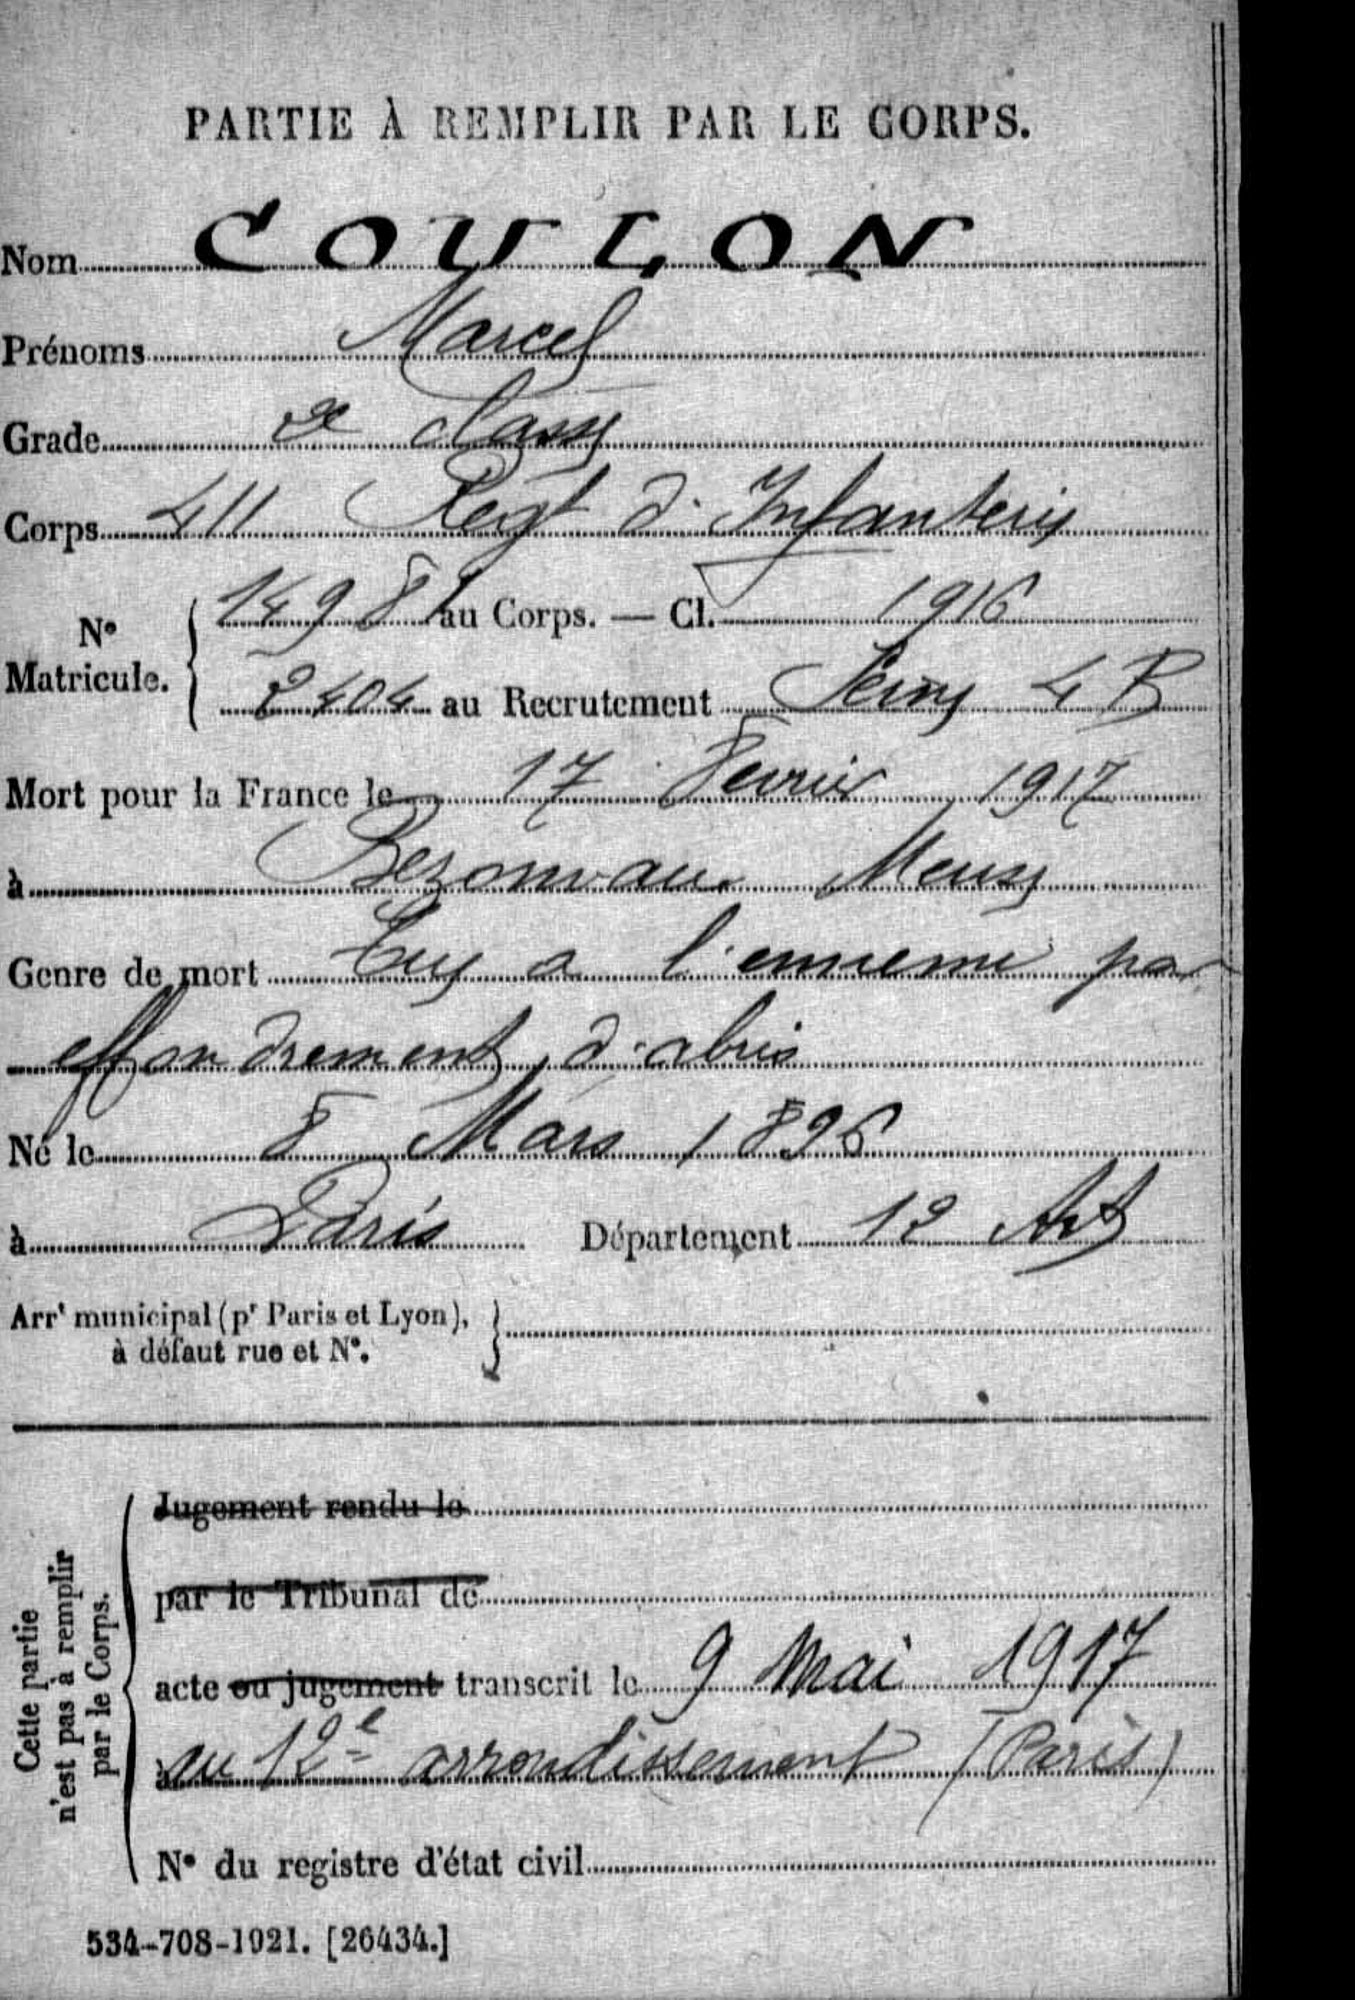 PARTIE À REMPLIR PAR LE CORPS.
Nom COULON
Prénoms Marcel
Grade 2e classe
Corps 411 Regt d'Infanterie
N° Matricule. 14981 au Corps. — Cl. 1916
2404 au Recrutement Seine 4 B
Mort pour la France le 17 Fevrier 1917
à Bezonvaux Meuse
Genre de mort Tué a l'ennemi par
effondrement d'abris
Né le 8 Mars 1896
à Paris Département 12 Art
Arrt municipal (pr Paris et Lyon),
à défaut rue et N°.
Cette partie
n'est pas à remplir
par le Corps.
Jugement rendu le
par le Tribunal de
acte ou jugement transcrit le 9 Mai 1917
au 12e arrondissement (Paris)
N° du registre d'état civil
534-708-1921. [26434.]